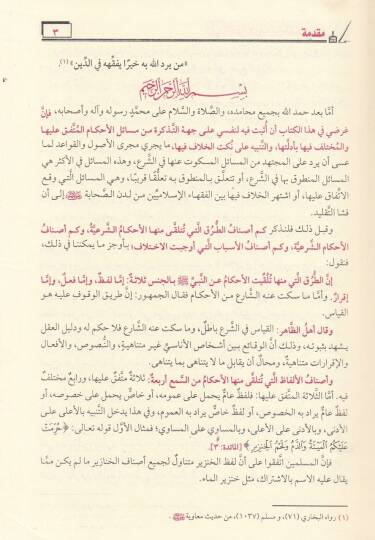 مقدمة
٣
«من يرد الله به خيرًا يفقِّهه في الدِّين»(١).
بسم الله الرحمن الرحيم
أمَّا بعد حمد الله بجميع محامده، والصَّلاة والسَّلام على محمَّدٍ رسوله وآله وأصحابه، فإنَّ
غرضي في هذا الكتاب أن أُثبت فيه لنفسي على جهة التَّذكرة من مسائل الأحكام المتَّفق عليها
والمختلف فيها بأدلَّتها، والتَّنبيه على نُكت الخلاف فيها، ما يجري مجرى الأصول والقواعد لما
عسى أن يرد على المجتهد من المسائل المسكوت عنها في الشَّرع، وهذه المسائل في الأكثر هي
المسائل المنطوق بها في الشَّرع، أو تتعلَّق بالمنطوق به تعلُّقًا قريبًا، وهي المسائل الَّتي وقع
الاتِّفاق عليها، أو اشتهر الخلاف فيها بين الفقهاء الإسلاميِّين من لدن الصَّحابة ﷺ إلى أن
فشا التَّقليد.
وقبل ذلك فلنذكر كم أصناف الطُّرُق الَّتي تُتلقَّى منها الأحكام الشَّرعيَّة، وكم أصناف
الأحكام الشَّرعيَّة، وكم أصناف الأسباب الَّتي أوجبت الاختلاف؛ بأوجز ما يمكننا في ذلك،
فنقول:
إنَّ الطُّرُق الَّتي منها تُلُقِّيت الأحكام عن النَّبيِّ ﷺ بالجنس ثلاثةٌ: إمَّا لفظٌ، وإمَّا فعلٌ، وإمَّا
إقرارٌ. وأمَّا ما سكت عنه الشَّارع من الأحكام فقال الجمهور: إنَّ طريق الوقوف عليه هو
القياس.
وقال أهل الظَّاهر: القياس في الشَّرع باطلٌ، وما سكت عنه الشَّارع فلا حكم له ودليل العقل
يشهد بثبوته، وذلك أنَّ الوقائع بين أشخاص الأناسيِّ غير متناهيةٍ، والنُّصوص، والأفعال
والإقرارات متناهيةٌ، ومحالٌ أن يقابل ما لا يتناهى بما يتناهى.
وأصناف الألفاظ الَّتي تُتلقَّى منها الأحكام من السَّمع أربعةٌ: ثلاثةٌ متَّفقٌ عليها، ورابعٌ مختلفٌ
فيه. أمَّا الثَّلاثة المتَّفق عليها: فلفظٌ عامٌّ يُحمل على عمومه، أو خاصٌّ يحمل على خصوصه، أو
لفظٌ عامٌّ يراد به الخصوص، أو لفظٌ خاصٌّ يراد به العموم، وفي هذا يدخل التَّنبيه بالأعلى على
الأدنى، وبالأدنى على الأعلى، وبالمساوي على المساوي؛ فمثال الأوَّل قوله تعالى: ﴿حُرِّمَتْ
عَلَيْكُمُ الْمَيْتَةُ وَالدَّمُ وَلَحْمُ الْخِنزِيرِ﴾ [المائدة: ٣].
فإنَّ المسلمين اتَّفقوا على أنَّ لفظ الخنزير متناولٌ لجميع أصناف الخنازير ما لم يكن ممَّا
يقال عليه الاسم بالاشتراك، مثل خنزير الماء.
(١) رواه البخاري (٧١)، و مسلم (١٠٣٧)، من حديث معاوية ﷺ.